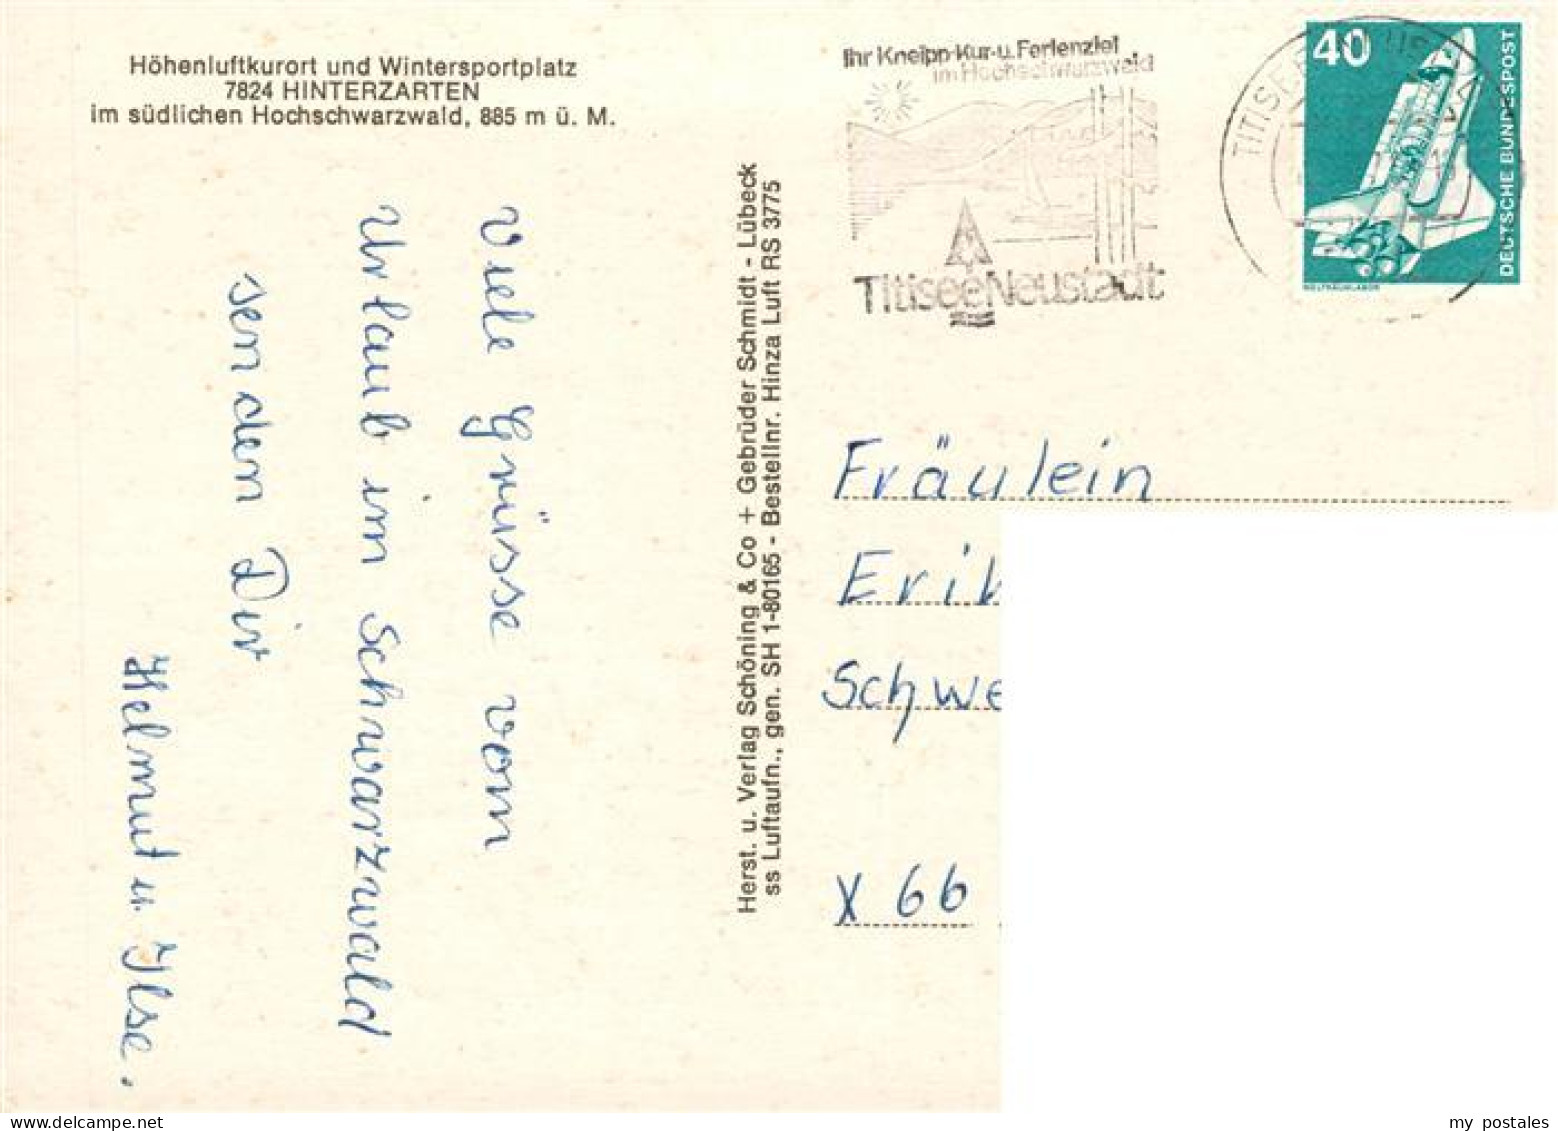 Höhenluftkurort und Wintersportplatz
7824 HINTERZARTEN
im südlichen Hochschwarzwald, 885 m ü. M.
Viele Grüsse vom
Urlaub im Schwarzwald
senden Dir
Helmut u. Ilse.
Herst. u. Verlag Schöning & Co + Gebrüder Schmidt - Lübeck
ss Luftaufn., gen. SH 1-80165 - Bestellnr. Hinza Luft RS 3775
Ihr Kneipp-Kur-u. Ferienziel
im Hochschwarzwald
Titisee Neustadt
TITISEE
40
DEUTSCHE BUNDESPOST
WELTRAUMLABOR
Fräulein
Erik
Schwe
X 66
my postales